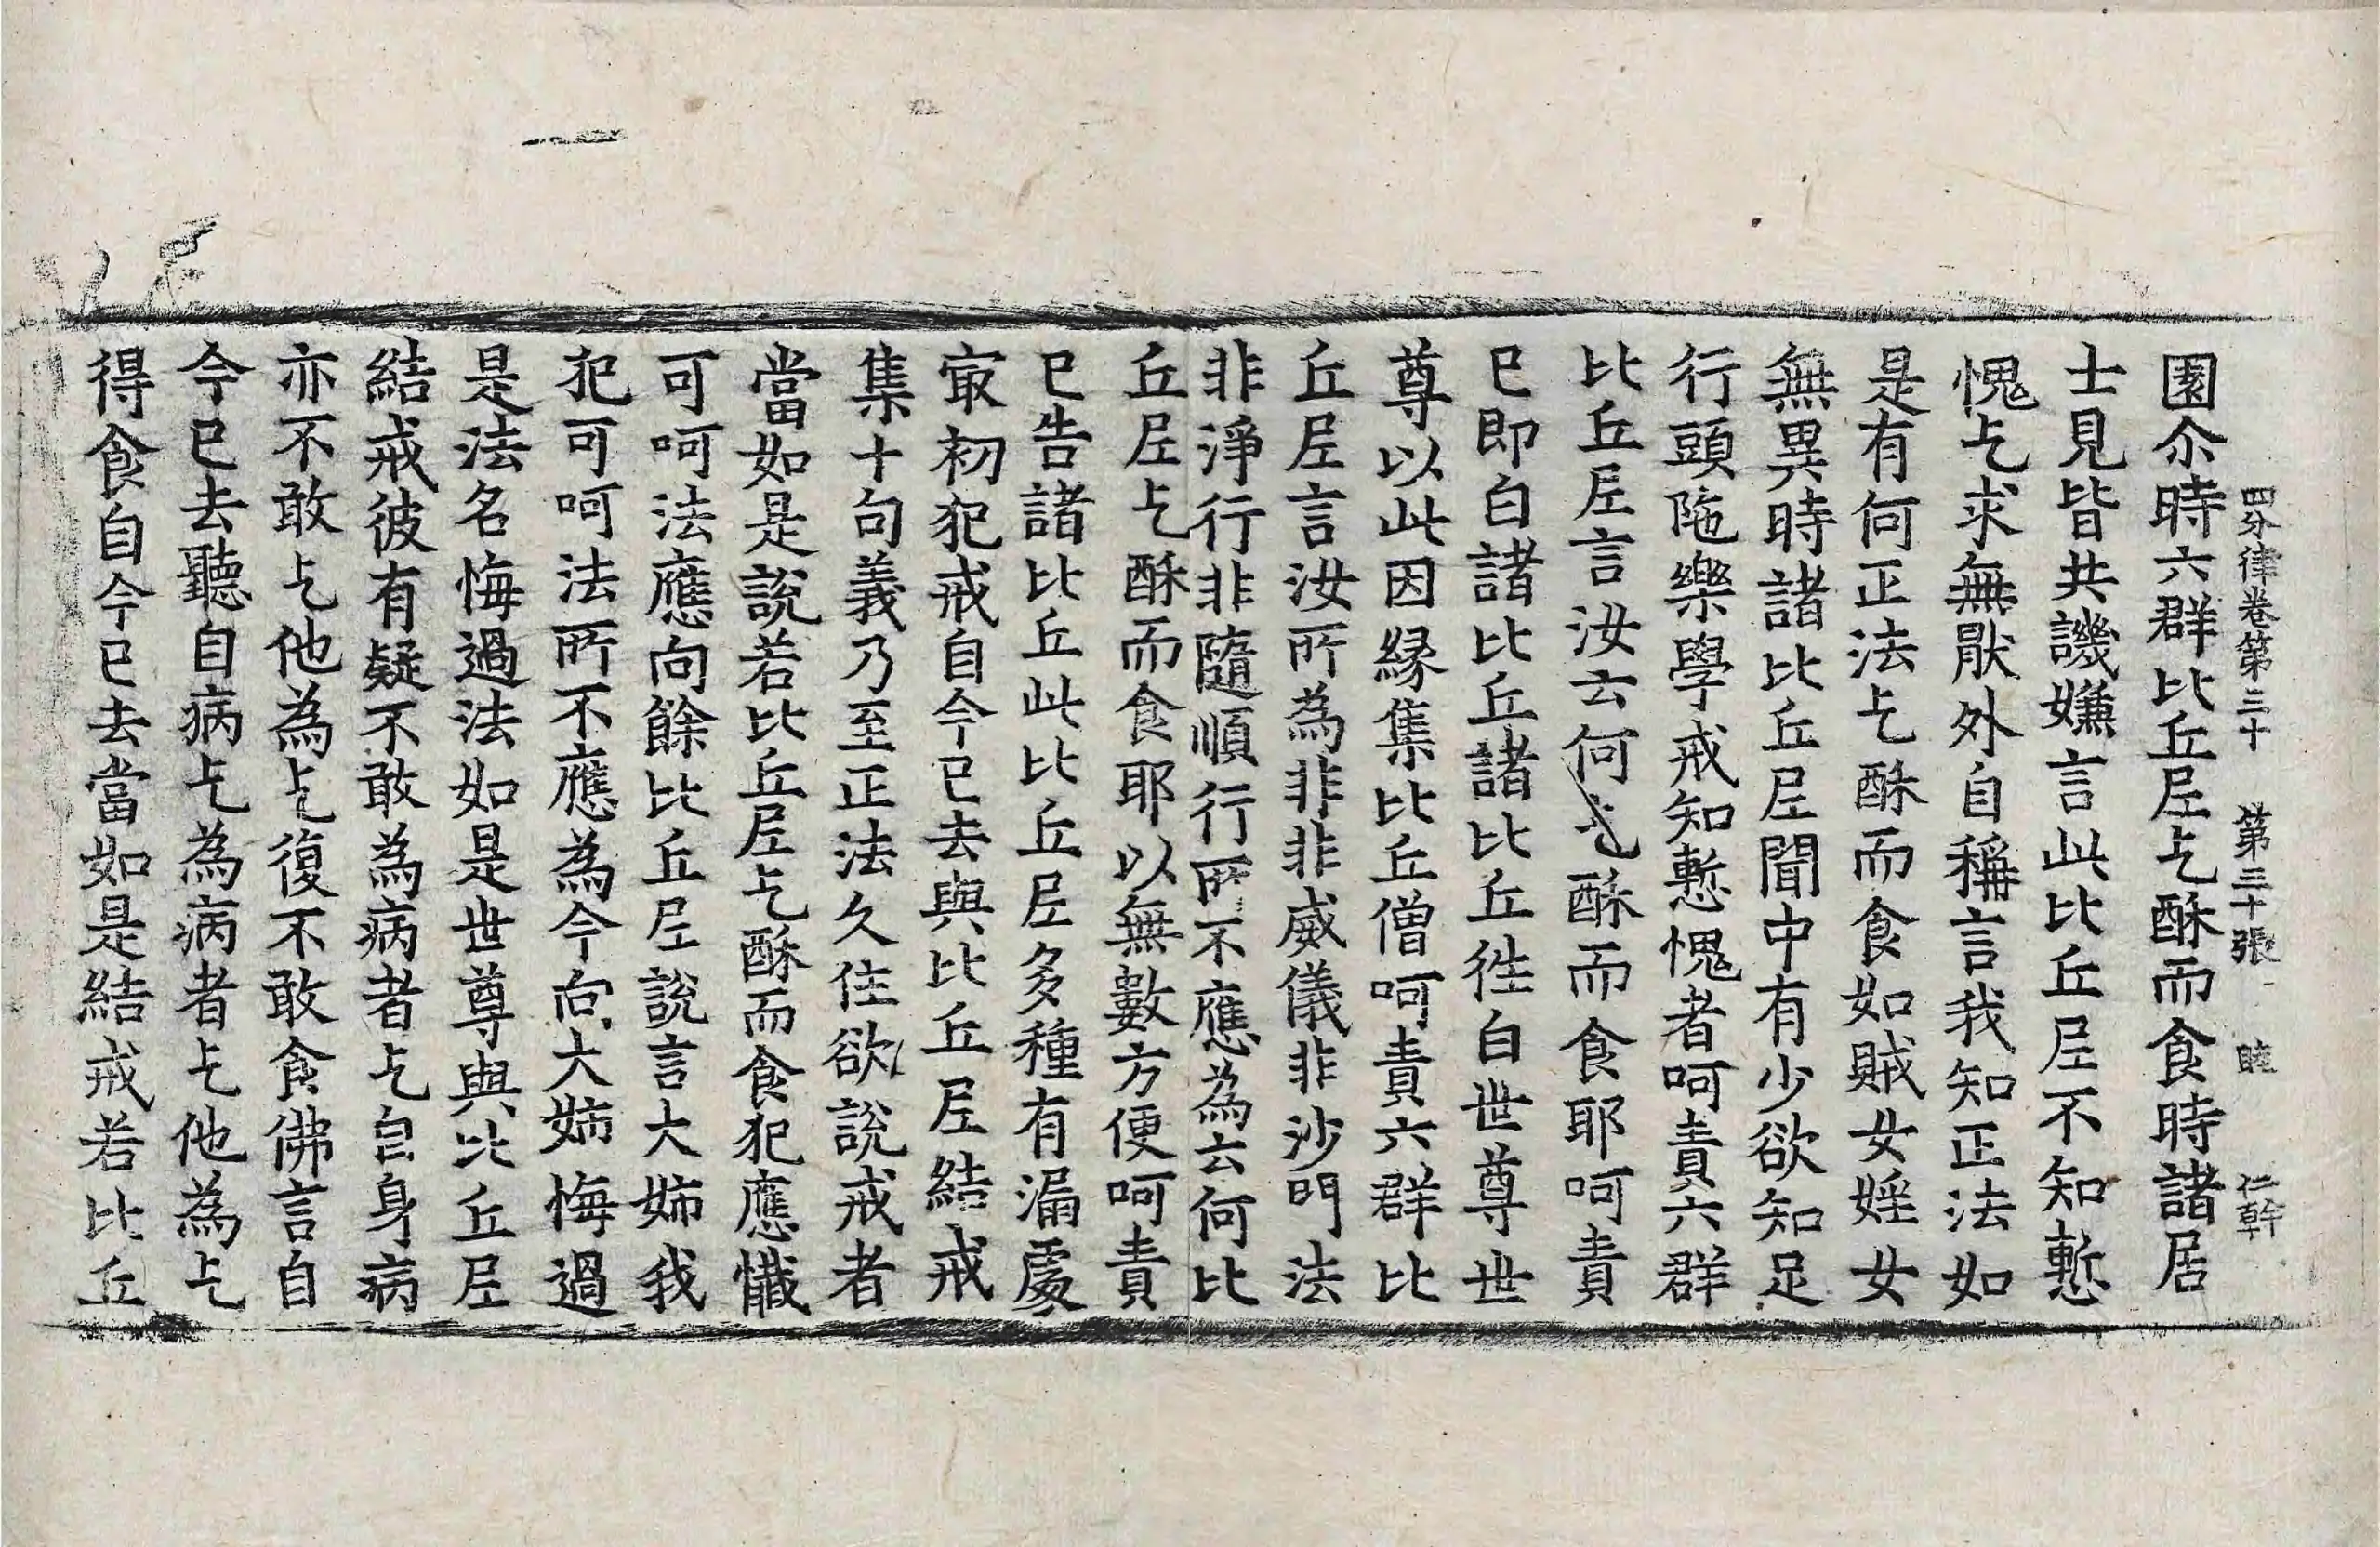 四分律卷第三十 第三十張 睦 仁幹
園尒時六群比丘尼乞酥而食時諸居
士見皆共譏嫌言此比丘尼不知慙
愧乞求無猒外自稱言我知正法如
是有何正法乞酥而食如賊女婬女
無異時諸比丘尼聞中有少欲知足
行頭陁樂學戒知慙愧者呵責六群
比丘尼言汝云何乞酥而食耶呵責
已即白諸比丘諸比丘徃白世尊世
尊以此因縁集比丘僧呵責六群比
丘尼言汝所為非非威儀非沙門法
非淨行非隨順行所不應為云何比
丘尼乞酥而食耶以無數方便呵責
已告諸比丘此比丘尼多種有漏處
㝡初犯戒自今已去與比丘尼結戒
集十句義乃至正法久住欲說戒者
當如是說若比丘尼乞酥而食犯應懺
可呵法應向餘比丘尼說言大姊我
犯可呵法所不應為今向大姊悔過
是法名悔過法如是世尊與比丘尼
結戒彼有疑不敢為病者乞自身病
亦不敢乞他為乞復不敢食佛言自
今已去聽自病乞為病者乞他為乞
得食自今已去當如是結戒若比丘